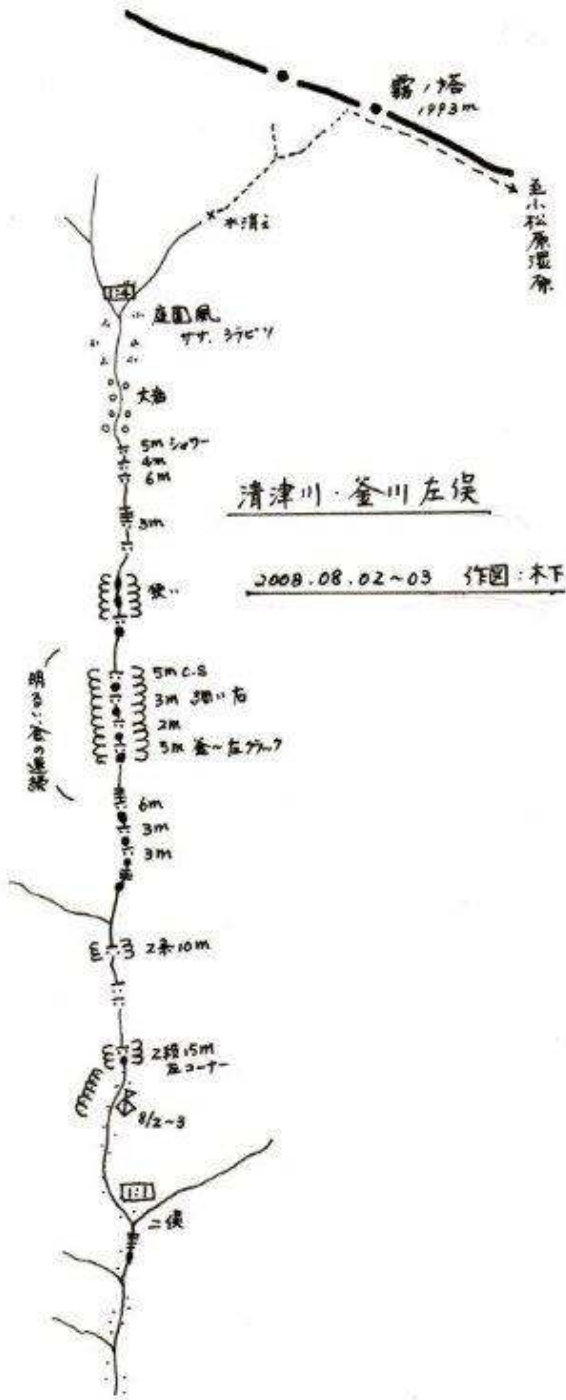 霧ノ塔
1993m
至小松原湿原
水消え
1:4
庭園風
ササ、シラビソ
大岩
5m シャワー
4m
6m
清津川・釜川左俣
3m
2008.08.02~03 作図:木下
狭い
明るい釜の連続
5m C.S
3m 細い右
2m
5m 釜~左クラック
6m
3m
3m
2条10m
2段15m
左コーナー
8/2~3
1:1
二俣